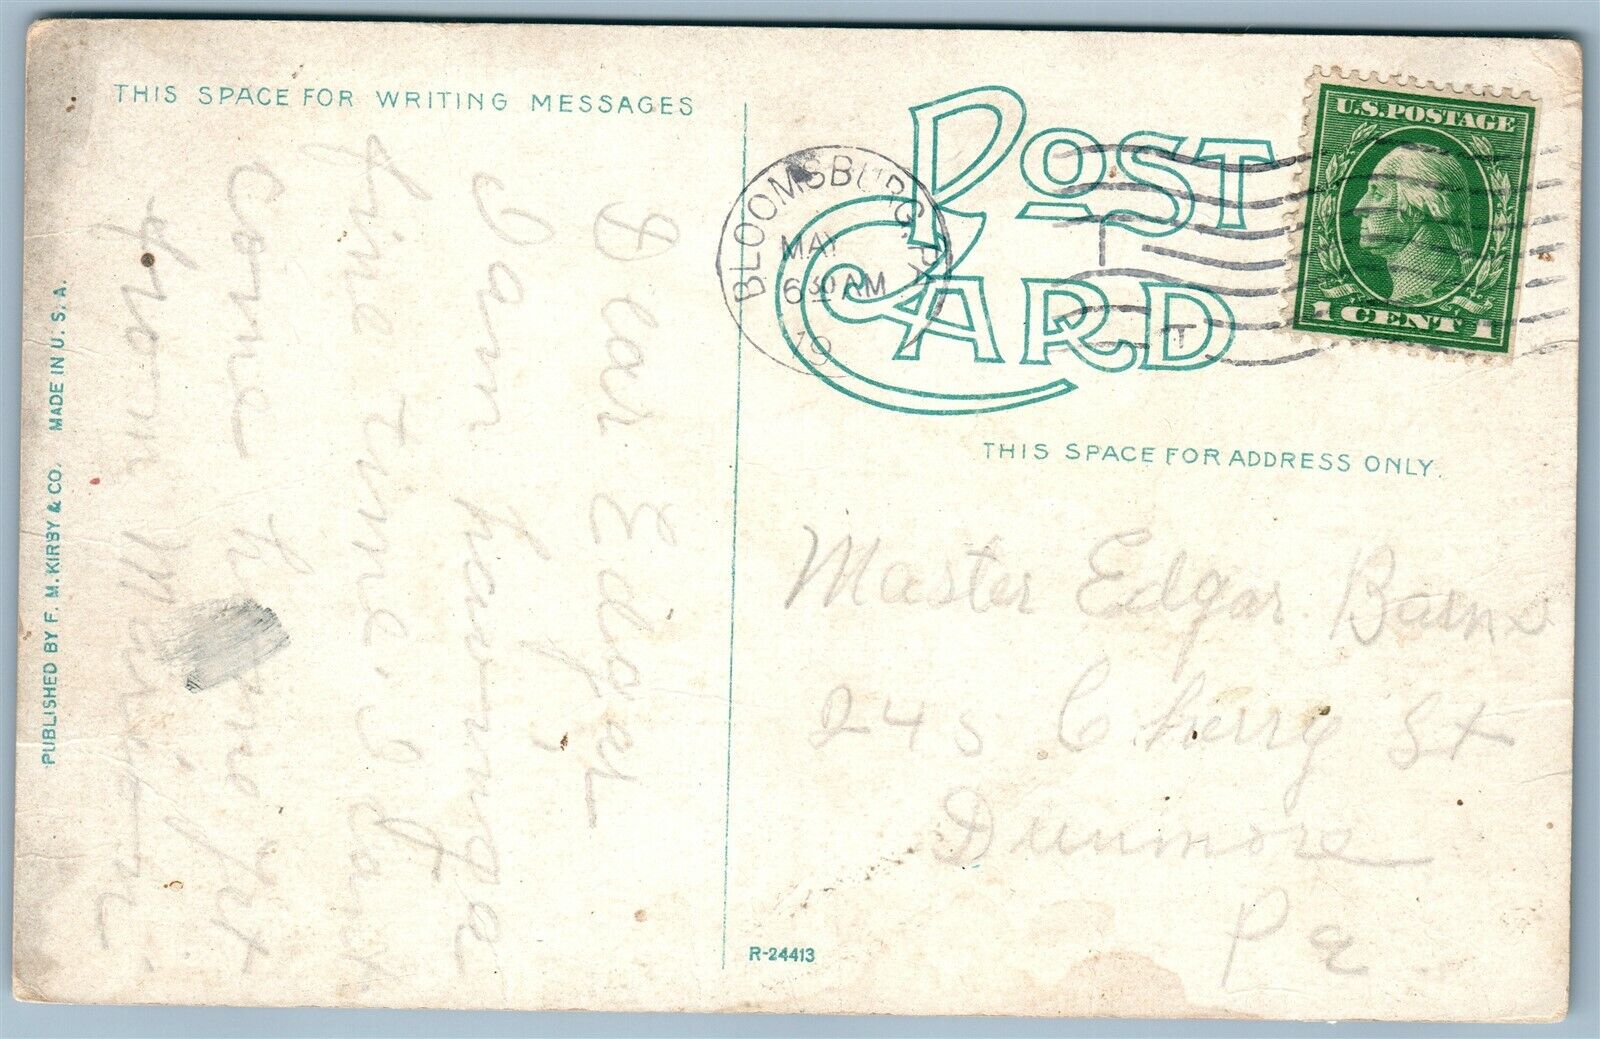 THIS SPACE FOR WRITING MESSAGES
Dear Edgar,
I am having a
fine time. I can't
come home yet
from Mama.
PUBLISHED BY F. M. KIRBY & CO. MADE IN U. S. A.
POST CARD
BLOOMSBURG, PA.
MAY
6 30 AM
19
U.S. POSTAGE
1 CENT 1
THIS SPACE FOR ADDRESS ONLY.
Master Edgar Barns
245 Cherry St
Dunmore
Pa
R-24413